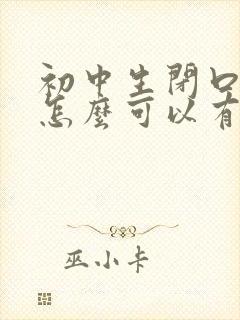 初中生閉口
怎麼可以有
巫小卡